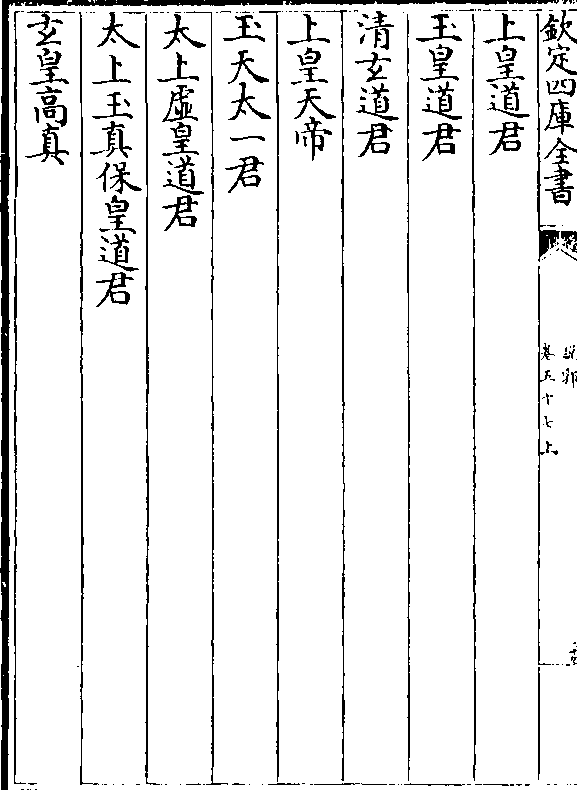 欽定四庫全書
說郛
卷五十七上
上皇道君
玉皇道君
清玄道君
上皇天帝
玉天太一君
太上虛皇道君
太上玉真保皇道君
玄皇高真